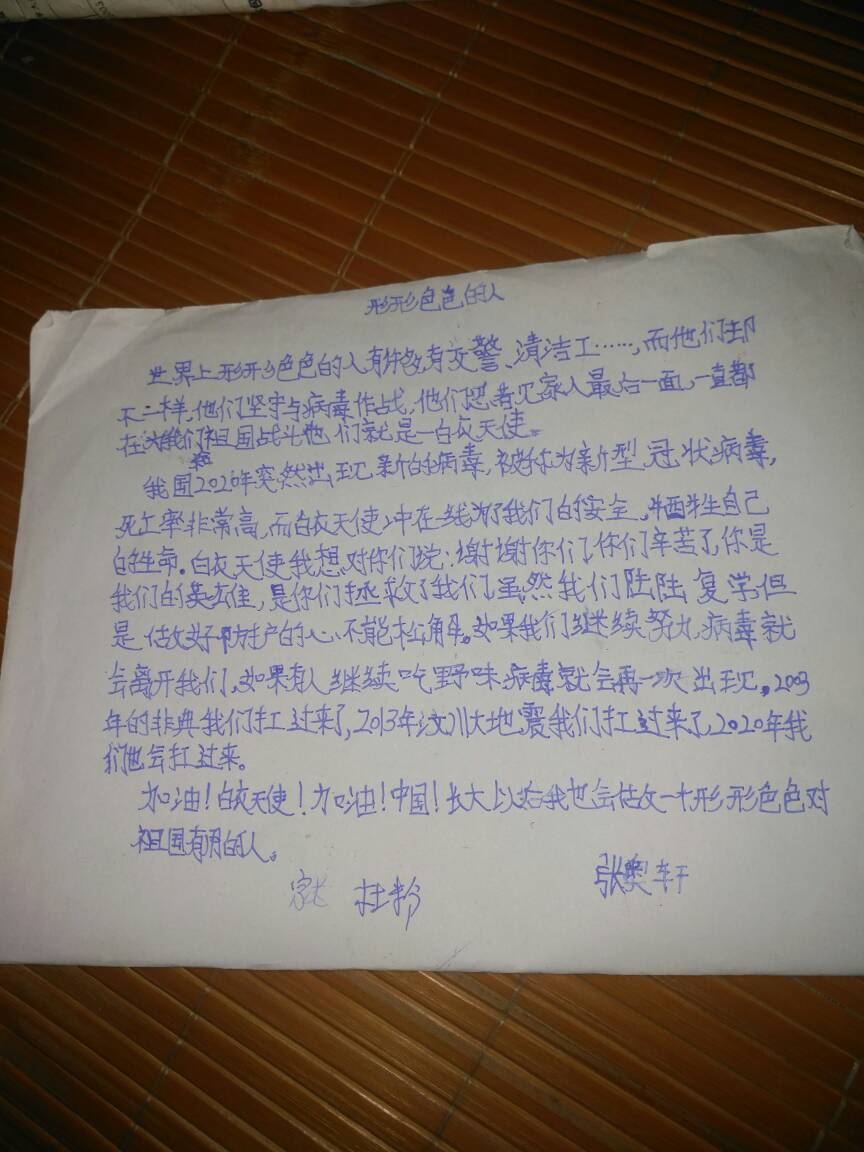 形形色色的人
世界上形形色色的人有许多,有交警、清洁工……,而他们却
不一样,他们坚守与病毒作战,他们忍着见家人最后一面,一直都
在为我们祖国战斗他们就是一白衣天使。
我国2020年突然出现新的病毒,被称为新型冠状病毒,
死亡率非常高,而白衣天使冲在一线为了我们的安全,牺牲生自己
的生命。白衣天使我想对你们说:谢谢你们了你们辛苦了,你是
我们的英雄,是你们拯救了我们虽然我们陆陆复学,但
是做好防护的心不能松解。如果我们继续努力,病毒就
会离开我们,如果有人继续吃野味病毒就会再一次出现。2003
年的非典我们扛过来了,2013年汶川大地震我们扛过来了,2020年我
们也会扛过来。
加油!白衣天使!加油!中国!长大以后我也会做一个形形色色对
祖国有用的人。
张奥轩